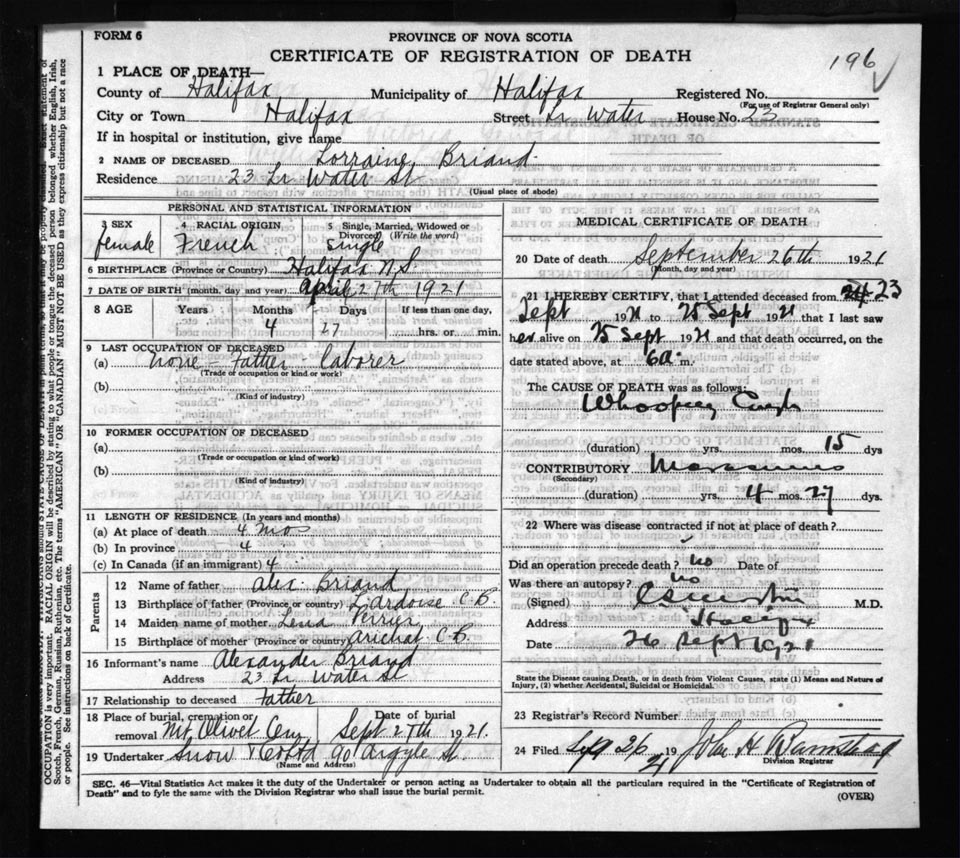 FORM 6
PROVINCE OF NOVA SCOTIA
CERTIFICATE OF REGISTRATION OF DEATH
196
1 PLACE OF DEATH—
County of Halifax Municipality of Halifax Registered No.
(For use of Registrar General only)
City or Town Halifax Street Lr Water House No. 23
If in hospital or institution, give name
2 NAME OF DECEASED Lorraine Briand
Residence 23 Lr Water St
(Usual place of abode)
PERSONAL AND STATISTICAL INFORMATION
3 SEX female
4 RACIAL ORIGIN French
5 Single, Married, Widowed or Divorced? (Write the word) single
6 BIRTHPLACE (Province or Country) Halifax N.S.
7 DATE OF BIRTH (month, day and year) April 27th 1921
8 AGE Years Months Days If less than one day,
4 27 hrs. or min.
9 LAST OCCUPATION OF DECEASED
(a) none - Father - laborer
(Trade or occupation or kind or work)
(b)
(Kind of industry)
10 FORMER OCCUPATION OF DECEASED
(a)
(Trade or occupation or kind of work)
(b)
(Kind of industry)
11 LENGTH OF RESIDENCE (In years and months)
(a) At place of death 4 mos
(b) In province 4
(c) In Canada (if an immigrant) 4
Parents
12 Name of father Alex. Briand
13 Birthplace of father (Province or country) L'Ardoise C.B.
14 Maiden name of mother Lena
15 Birthplace of mother (Province or country) Arichat C.B.
16 Informant's name Alexander Briand
Address 23 Lr Water St
17 Relationship to deceased Father
18 Place of burial, cremation or removal Mt. Olivet Cem, Date of burial Sept 27th 1921.
19 Undertaker Snow & Co Ltd 90 Argyle St.
(Name and Address)
MEDICAL CERTIFICATE OF DEATH
20 Date of death September 26th 1921
(Month, day and year)
21 I HEREBY CERTIFY, that I attended deceased from 23
Sept 1921 to 25 Sept 1921 that I last saw
her alive on 25 Sept 1921 and that death occurred, on the
date stated above, at 6 a. m.
The CAUSE OF DEATH was as follows:
Whooping Cough
(duration) yrs. mos. 15 dys
CONTRIBUTORY Marasmus
(Secondary)
(duration) yrs. 4 mos. 27 dys.
22 Where was disease contracted if not at place of death?
Did an operation precede death? no Date of
Was there an autopsy? no
(Signed) M.D.
Address Halifax
Date 26 Sept 1921
State the Disease causing Death, or in death from Violent Causes, state (1) Means and Nature of Injury, (2) whether Accidental, Suicidal or Homicidal.
23 Registrar's Record Number
24 Filed 26 1921 John H
Division Registrar
SEC. 46—Vital Statistics Act makes it the duty of the Undertaker or person acting as Undertaker to obtain all the particulars required in the "Certificate of Registration of
Death" and to fyle the same with the Division Registrar who shall issue the burial permit.
(OVER)
OCCUPATION is very important. RACIAL ORIGIN will be described by stating to what people or tongue the deceased person belonged whether English, Irish,
Scotch, French, German, Russian, Ruthenian, etc. The terms "AMERICAN" OR "CANADIAN" MUST NOT BE USED as they express citizenship but not a race
or people. See instructions on back of Certificate.